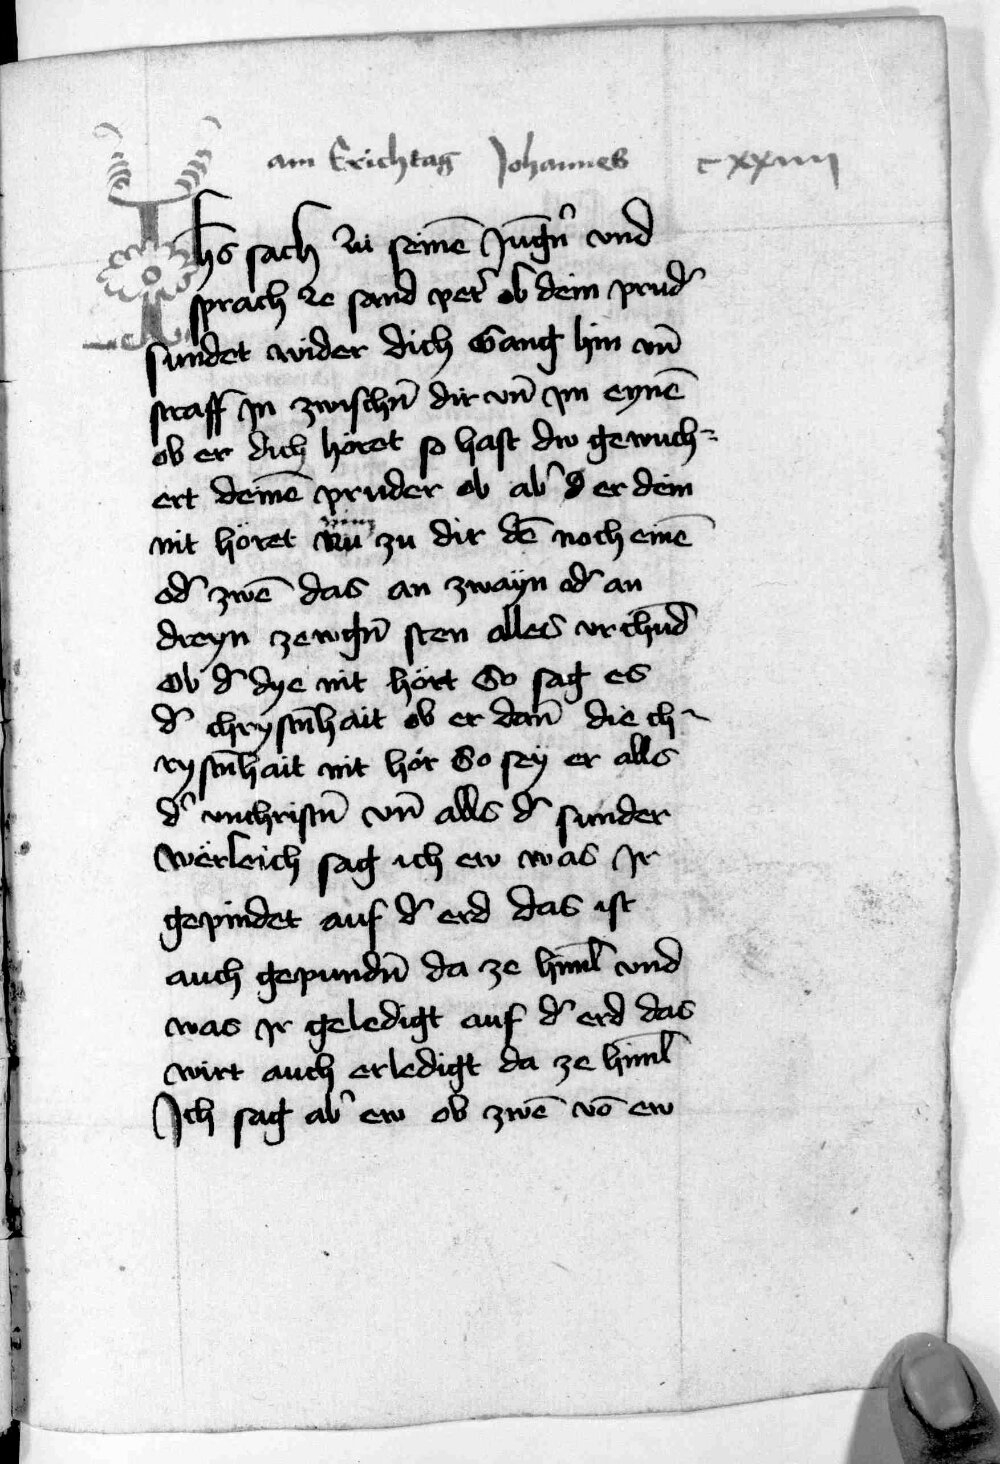 am Erichtag Johannes cxxiiii
Ihs sach zu seinē Jūgn̄ vnd
sprach ze sand pet̓ ob dein prud̓
sundet wider dich Gang hin vn̄
straff in zwischn̄ dir vn̄ im eynē
ob er dich höret so hast dw gewuch⸗
ert deinē pruder ob ab̓ d er dein
nit höret nim zu dir dē noch einē
od̓ zwē das an zwayn od̓ an
dreyn zewgn̄ sten alles vrchūd
Ob d̓ dye nit hört So sag es
d̓ chrystn̄hait ob er dan̄ die ch⸗
rystn̄hait nit hör So sey er alls
d̓ vnchristn̄ vn̄ alls d̓ sunder
Wërleich sag ich ew was Ir
gepindet auf d̓ erd das ist
auch gepundn̄ da ze himl̄ vnd
was Ir geledigt auf d̓ erd das
wirt auch erledigt da ze himl̄
Ich sag ab̓ ew ob zwē vō ew